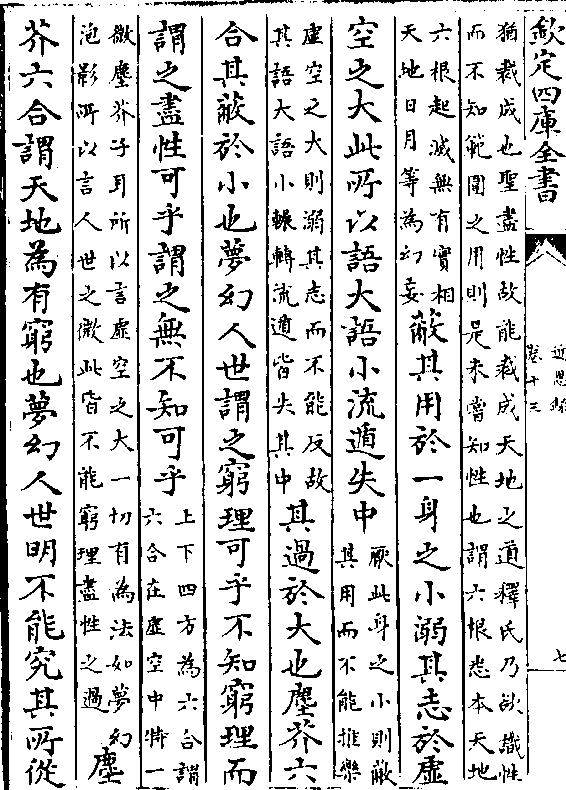 欽定四庫全書
近思錄
卷十三
七
猶裁成也聖盡性故能裁成天地之道釋氏乃欲識性
而不知範圍之用則是未嘗知性也謂六根悉本天地
六根起滅無有實相
天地日月等為幻妄
蔽其用於一身之小溺其志於虛
空之大此所以語大語小流遁失中
厭此身之小則蔽
其用而不能推樂
虛空之大則溺其志而不能反故
其語大語小輾轉流遁皆失其中
其過於大也塵芥六
合其蔽於小也夢幻人世謂之窮理可乎不知窮理而
謂之盡性可乎謂之無不知可乎
上下四方為六合謂
六合在虛空中特一
微塵芥子耳所以言虛空之大一切有為法如夢幻
泡影所以言人世之微此皆不能窮理盡性之過
塵
芥六合謂天地為有窮也夢幻人世明不能究其所從